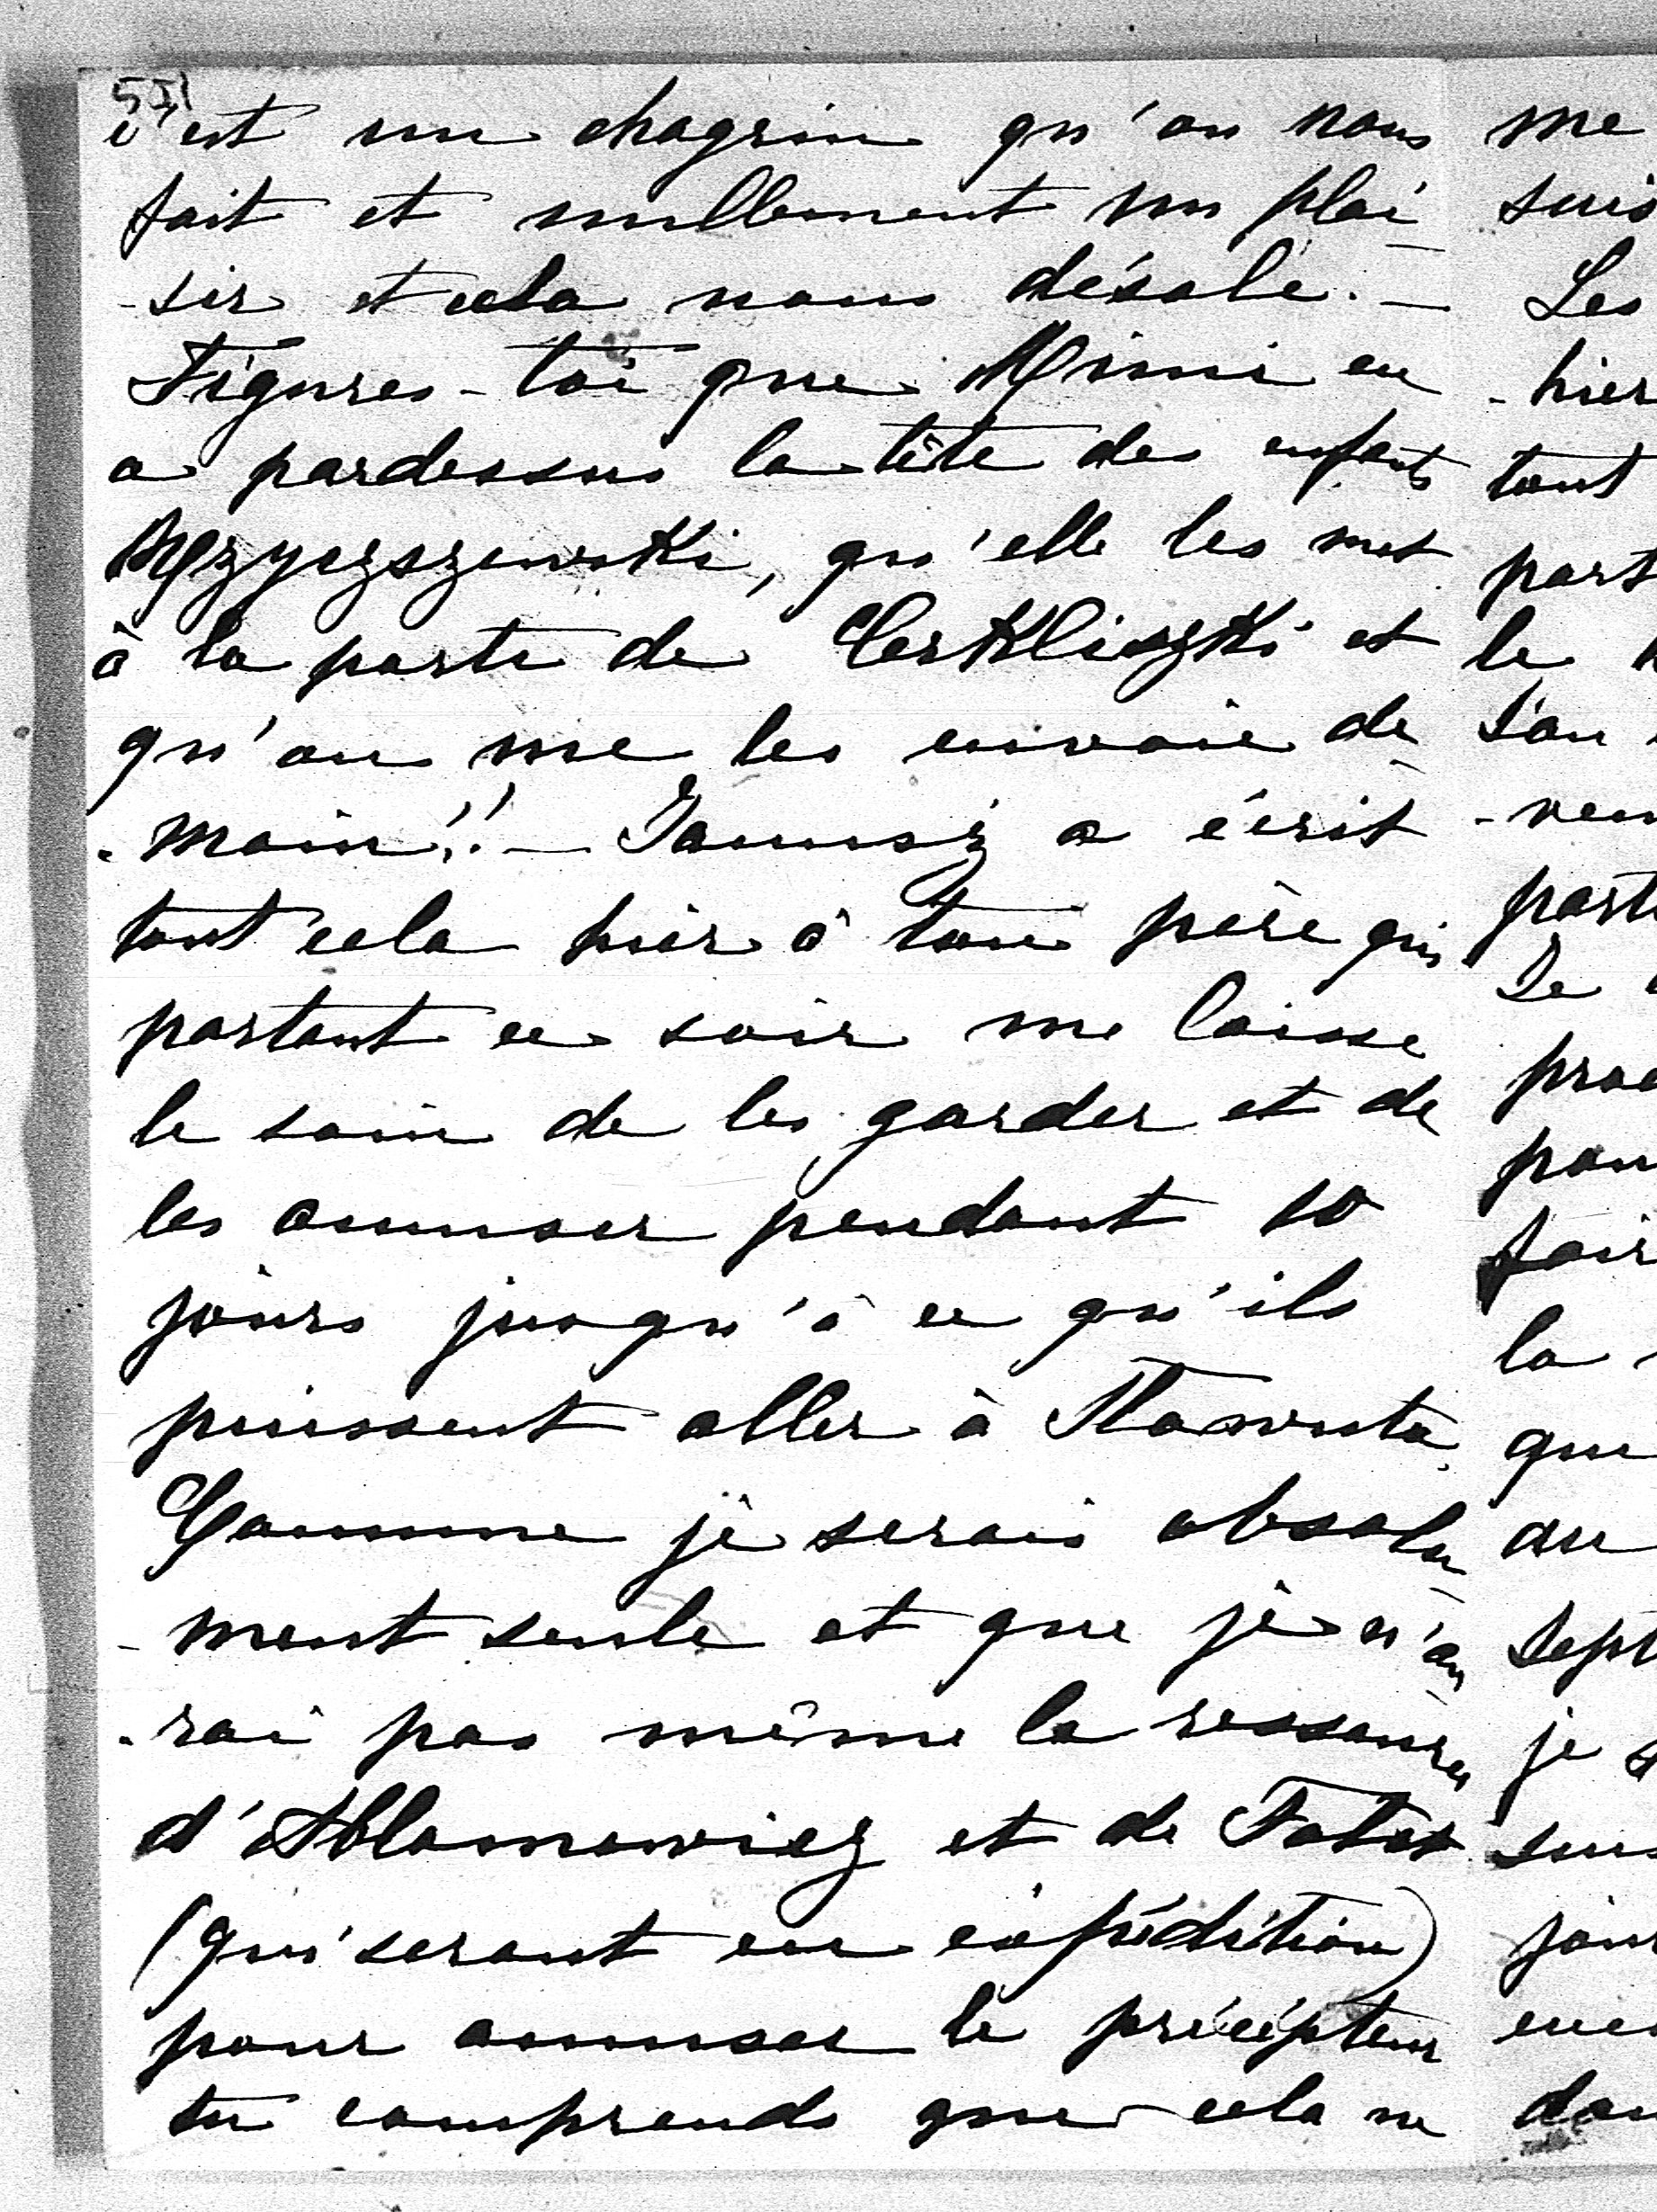 c'est un chagrin qu'on nous
fait et nullement un plai
-sir et cela nous désole. —
Figures-toi que Mimi en
a pardessus la tête des enfants
qu'elle les met
à la porte de Cerkliszki et
qu'on me les envoie de
-main!! — Janusz a écrit
tout cela hier à ton père qui
partant ce soir me laisse
le soin de les garder et de
les amuser pendant 10
jours jusqu'à ce qu'ils
puissent aller à Slawuta.
Comme je serais absolu
-ment seule et que je n'au
-rai pas même la ressource
d'Ablamowicz et de
(qui seront en expédition)
pour amuser le précepteur
tu comprends que cela me
me
suis
Les
-hier
tout
part
le
s'en
-ven
parti
De
proc
pour
fair
la
que
au
sept
je
sur
jour
enc
dan